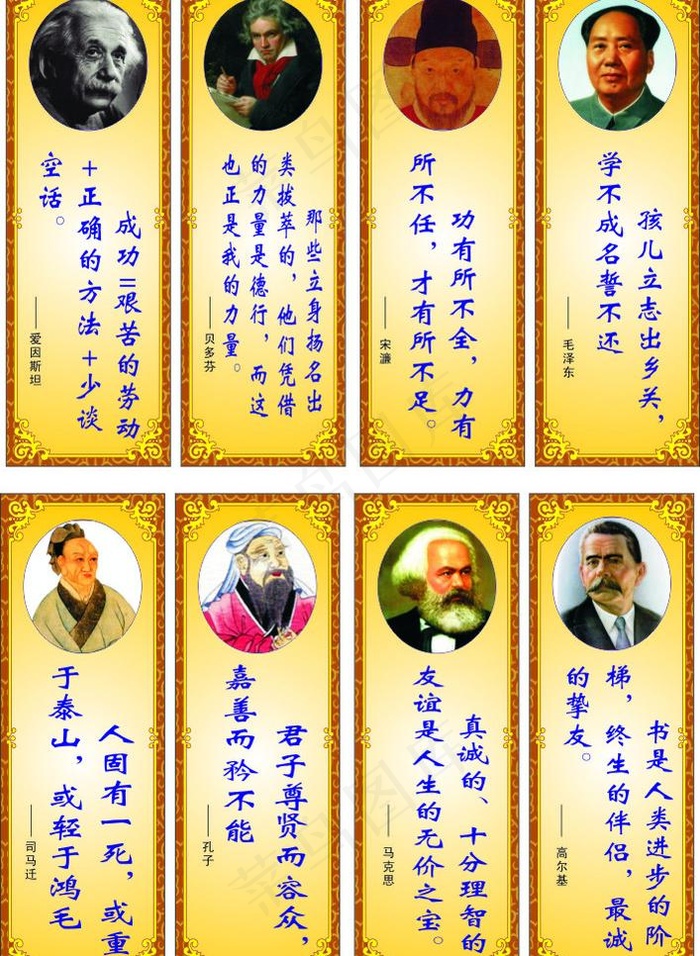 成功=艰苦的劳动
+正确的方法+少谈
空话。
——爱因斯坦
那些立身扬名出
类拔萃的，他们凭借
的力量是德行，而这
也正是我的力量。
——贝多芬
功有所不全，力有
所不任，才有所不足。
——宋濂
孩儿立志出乡关，
学不成名誓不还
——毛泽东
人固有一死，或重
于泰山，或轻于鸿毛
——司马迁
君子尊贤而容众，
嘉善而矜不能
——孔子
真诚的、十分理智的
友谊是人生的无价之宝。
——马克思
书是人类进步的阶
梯，终生的伴侣，最诚
的挚友。
——高尔基
菜鸟图库